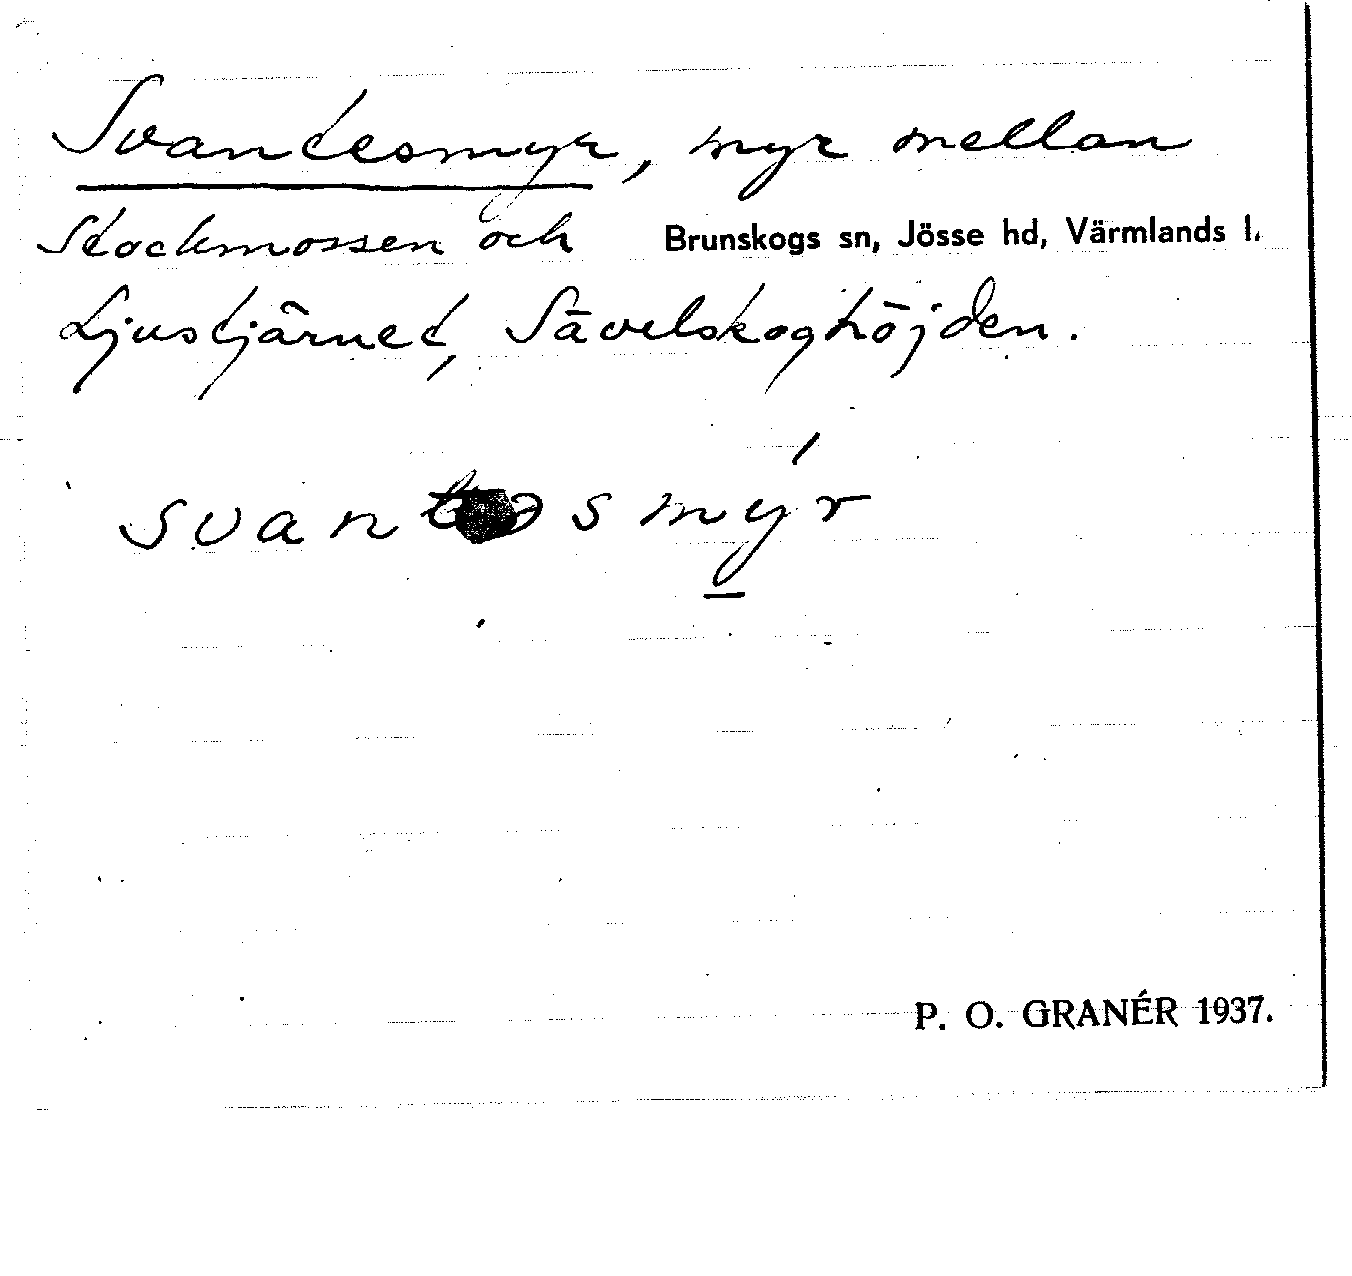 Svantesmyr, myr mellan
Stockmossen och Brunskogs sn, Jösse hd, Värmlands l.
Ljustjärnet, Sävelskoghöjden.
svan s mýr
P. O. GRANÉR 1937.